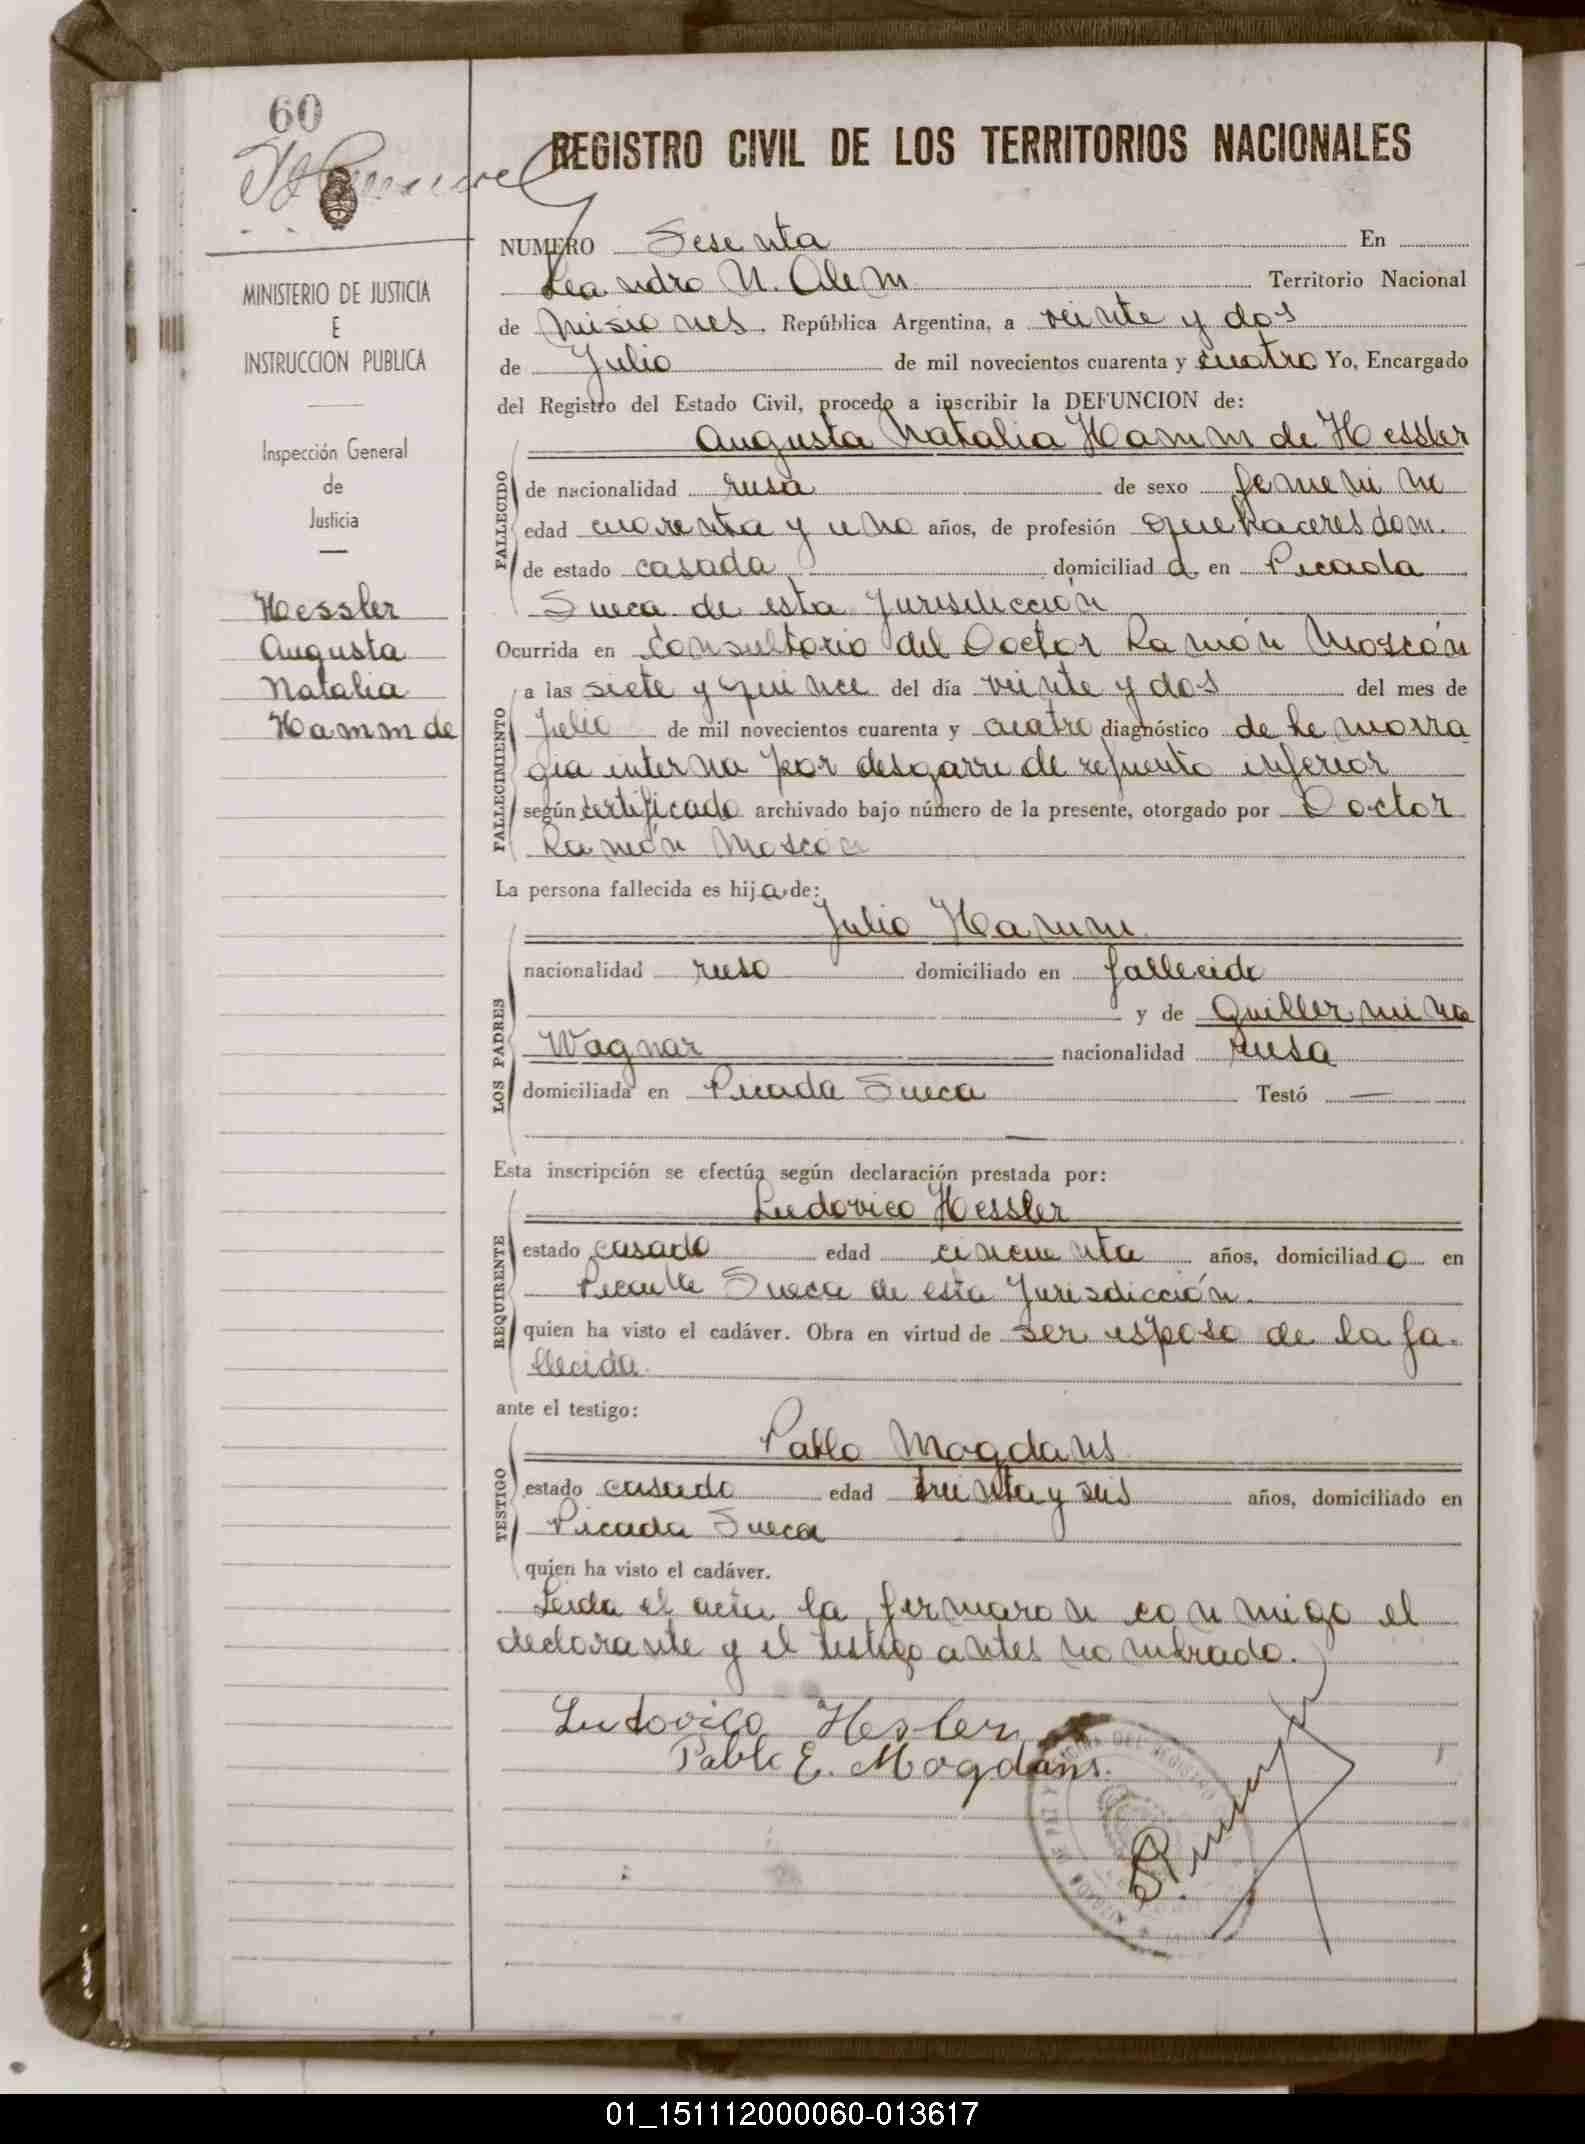 60
REGISTRO CIVIL DE LOS TERRITORIOS NACIONALES
MINISTERIO DE JUSTICIA
E
INSTRUCCION PUBLICA
Inspección General
de
Justicia
Hessler
Augusta
Natalia
Hamm de
NUMERO Sesenta En
Leandro N. Alem Territorio Nacional
de Misiones. República Argentina, a veinte y dos
de Julio de mil novecientos cuarenta y cuatro Yo, Encargado
del Registro del Estado Civil, procedo a inscribir la DEFUNCION de:
Augusta Natalia Hamm de Hessler
FALLECIDO
de nacionalidad rusa de sexo femenino
edad cuarenta y uno años, de profesión quehaceres dom.
de estado casada domiciliada en Picada
Sueca de esta Jurisdicción
Ocurrida en Consultorio del Doctor Ramón Moscón
FALLECIMIENTO
a las siete y quince del día veinte y dos del mes de
Julio de mil novecientos cuarenta y cuatro diagnóstico de hemorra
gia interna por desgarre de
 inferior
según certificado archivado bajo número de la presente, otorgado por Doctor
Ramón Moscón
La persona fallecida es hija de:
Julio Hamm
LOS PADRES
nacionalidad ruso domiciliado en fallecido
y de Guillermina
Wagnar nacionalidad rusa
domiciliada en Picada Sueca Testó —
—
Esta inscripción se efectúa según declaración prestada por:
Ludovico Hessler
REQUIRENTE
estado casado edad cincuenta años, domiciliado en
Picada Sueca de esta Jurisdicción.
quien ha visto el cadáver. Obra en virtud de ser esposo de la fa-
llecida.
ante el testigo:
Pablo Mogdans
TESTIGO
estado casado edad treinta y seis años, domiciliado en
Picada Sueca
quien ha visto el cadáver.
Leida el acta la firmaron conmigo el
declarante y el testigo antes nombrado.
Ludovico Hesler
Pablo E. Mogdans.
01_151112000060-013617